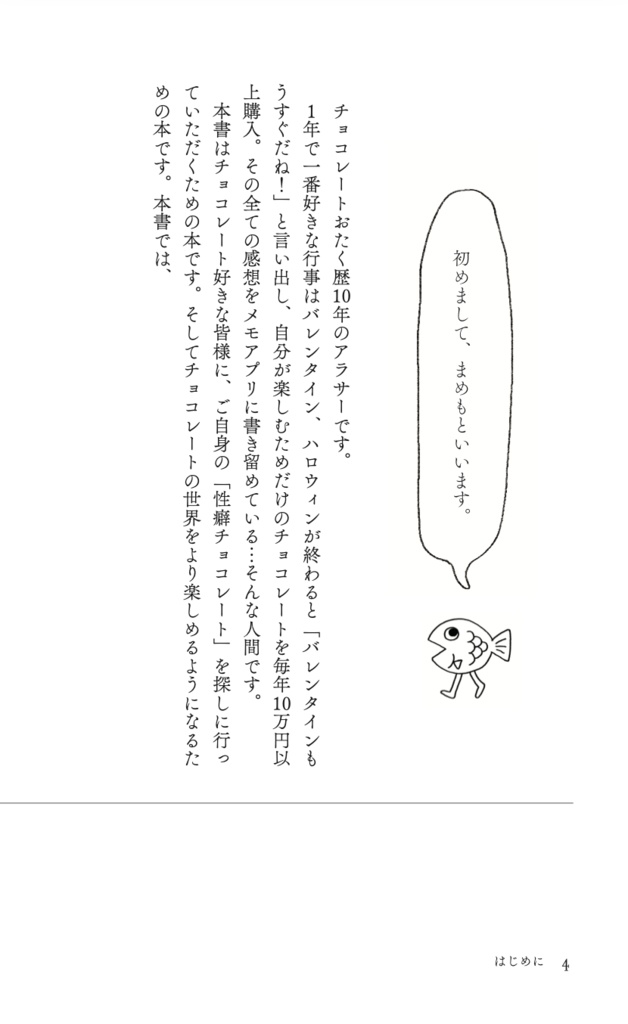 初めまして、まめもといいます。
チョコレートおたく歴10年のアラサーです。
1年で一番好きな行事はバレンタイン、ハロウィンが終わると「バレンタインも
うすぐだね！」と言い出し、自分が楽しむためだけのチョコレートを毎年10万円以
上購入。その全ての感想をメモアプリに書き留めている…そんな人間です。
本書はチョコレート好きな皆様に、ご自身の「性癖チョコレート」を探しに行っ
ていただくための本です。そしてチョコレートの世界をより楽しめるようになるた
めの本です。本書では、
はじめに 4